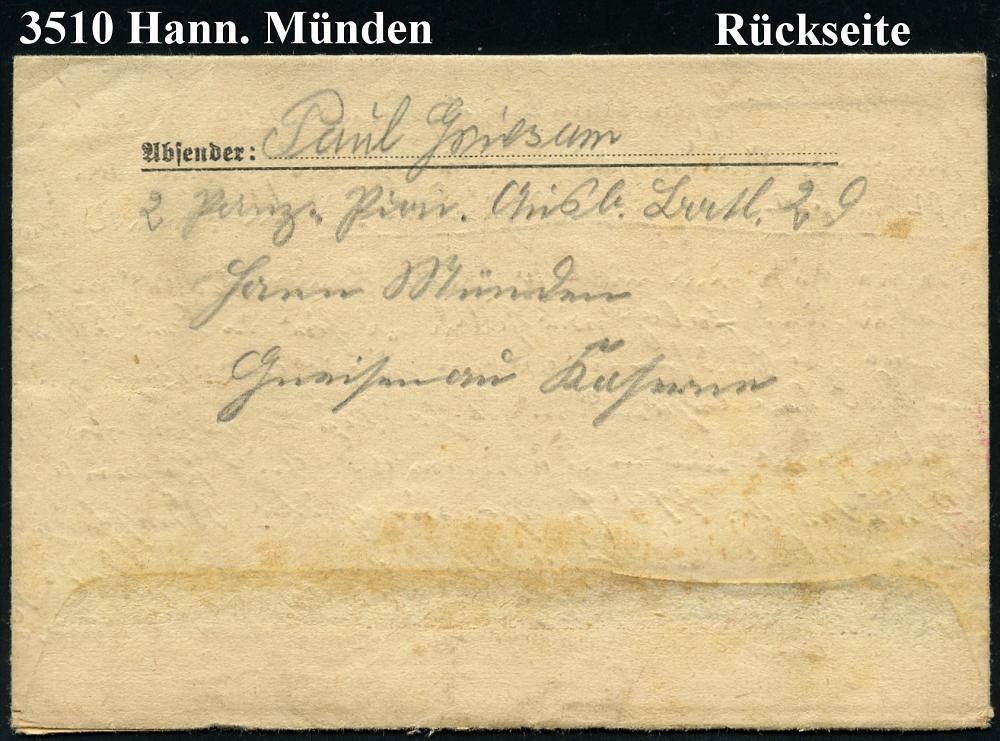 3510 Hann. Münden
Rückseite
Absender: Paul Griesam
2 Panz. Pion. Ausb. Batl. 29
Hann Münden
Gneisenau Kaserne